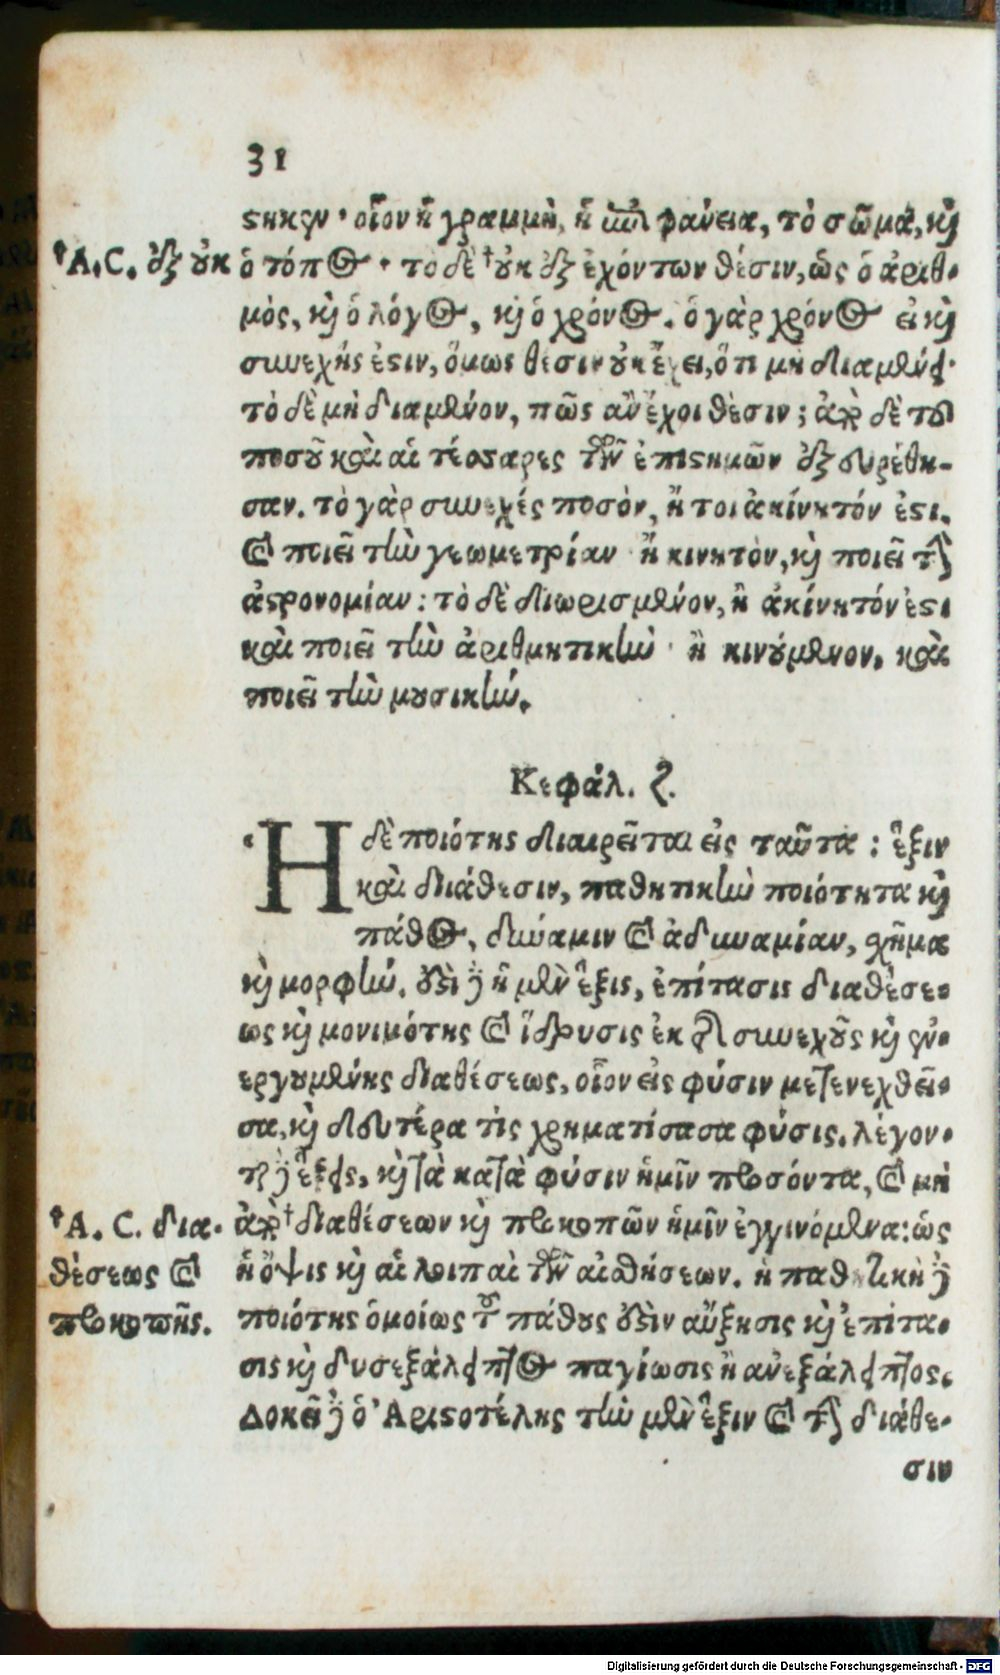 31
ϛηκεν· οἷον ἡ γραμμὴ, ἡ ἐπιφάνεια, τὸ σῶμα, καὶ
†A. C. ἐξ οὐκ
ὁ τόπος· τὸ δὲ †οὐκ ἐξ ἐχόντων θέσιν, ὡς ὁ ἀριθ-
μὸς, καὶ ὁ λόγος, καὶ ὁ χρόνος. ὁ γὰρ χρόνος εἰ καὶ
συνεχής ἐϛιν, ὅμως θέσιν οὐκ ἔχει, ὅτι μὴ διαμένει·
τὸ δὲ μὴ διαμένον, πῶς ἂν ἔχοι θέσιν; ἀπὸ δὲ τοῦ
ποσοῦ καὶ αἱ τέσσαρες τῶν ἐπιϛημῶν ἐξευρέθη-
σαν. τὸ γὰρ συνεχές ποσὸν, ἤτοι ἀκίνητόν ἐϛι,
καὶ ποιεῖ τὴν γεωμετρίαν· ἢ κινητὸν, καὶ ποιεῖ τὴν
ἀϛρονομίαν: τὸ δὲ διωρισμένον, ἢ ἀκίνητόν ἐϛι
καὶ ποιεῖ τὴν ἀριθμητικὴν· ἢ κινούμενον, καὶ
ποιεῖ τὴν μουσικήν.
Κεφάλ. ζ.
Ἡ δὲ ποιότης διαιρεῖται εἰς ταῦτα: ἕξιν
καὶ διάθεσιν, παθητικὴν ποιότητα καὶ
πάθος, δύναμιν καὶ ἀδυναμίαν, σχῆμα
καὶ μορφήν. ἔϛι δὲ ἡ μὲν ἕξις, ἐπίτασις διαθέσε-
ως καὶ μονιμότης καὶ ἵδρυσις ἐκ τῆς συνεχοῦς καὶ ἐν-
εργουμένης διαθέσεως, οἷον εἰς φύσιν μετενεχθεῖ-
σα, καὶ δευτέρα τὶς χρηματίσασα φύσις. λέγον-
ται δὲ ἕξεις, καὶ τὰ κατὰ φύσιν ἡμῖν προσόντα, καὶ μὴ
†A. C. δια-
θέσεως καὶ
προκοπῆς.
ἀπὸ †διαθέσεων καὶ προκοπῶν ἡμῖν ἐγγινόμενα: ὡς
ἡ ὄψις καὶ αἱ λοιπαὶ τῶν αἰσθήσεων. ἡ παθητικὴ δὲ
ποιότης ὁμοίως τοῦ πάθους ἐϛὶν αὔξησις καὶ ἐπίτα-
σις καὶ δυσεξάλειπτος παγίωσις ἢ ἀνεξάλειπτος.
Δοκεῖ δὲ ὁ Ἀριϛοτέλης τὴν μὲν ἕξιν καὶ τὴν διάθε-
σιν
Digitalisierung gefördert durch die Deutsche Forschungsgemeinschaft - DFG